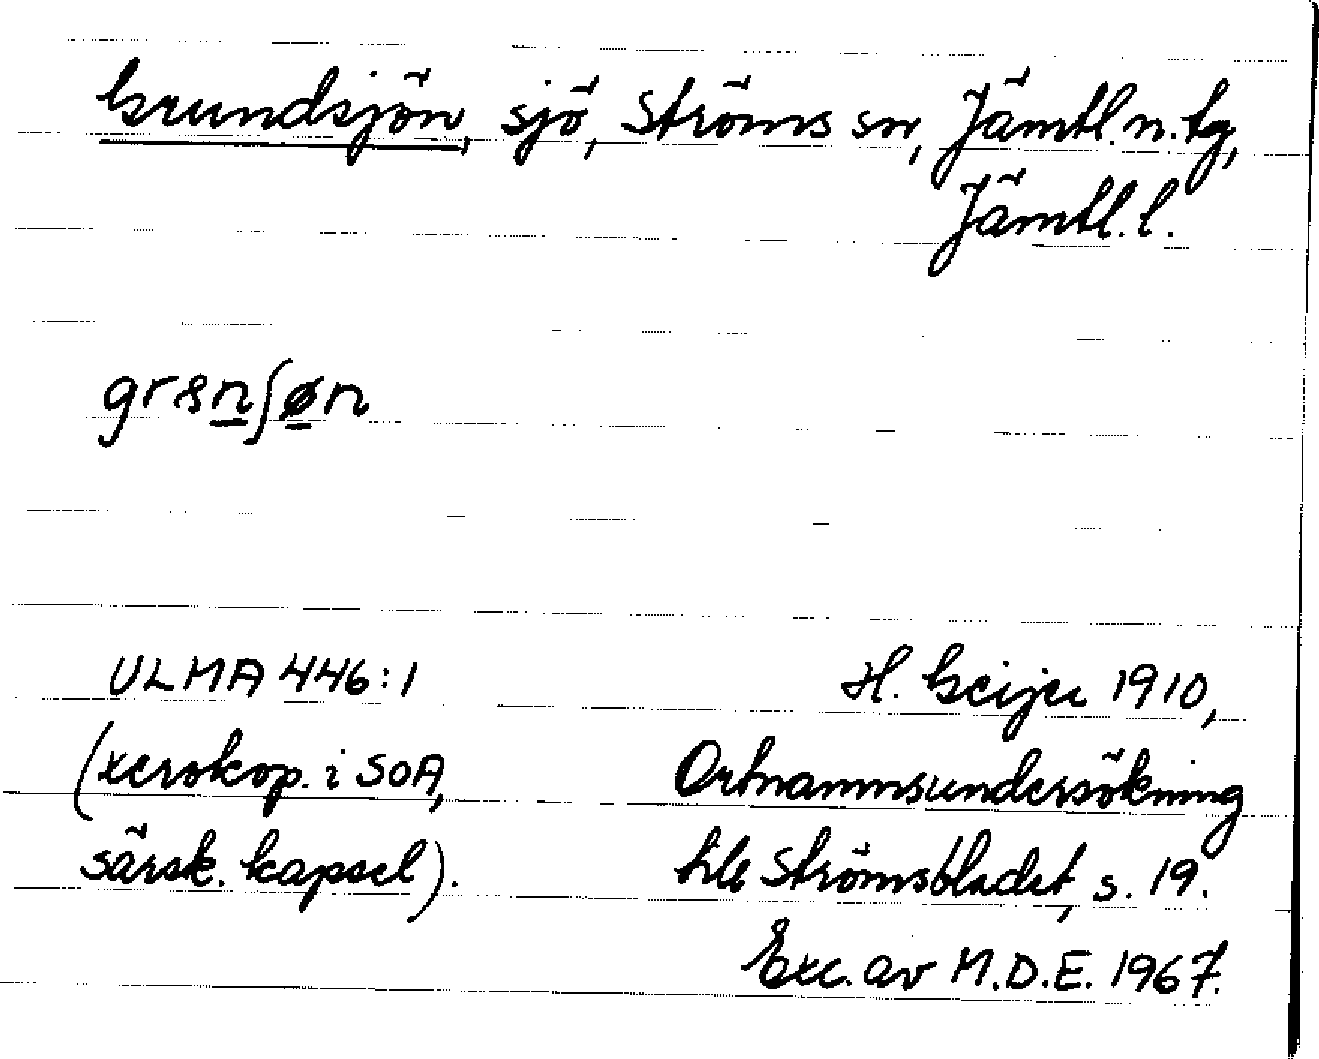 Grundsjön, sjö, Ströms sn, Jämtl. n. tg,
Jämtl. l.
ULMA 446:1
H. Geijer 1910,
(xerokop. i SOA,
Ortnamnsundersökning
särsk. kapsel).
Strömsbladet, s. 19.
Exc. av M.D.E. 1967.